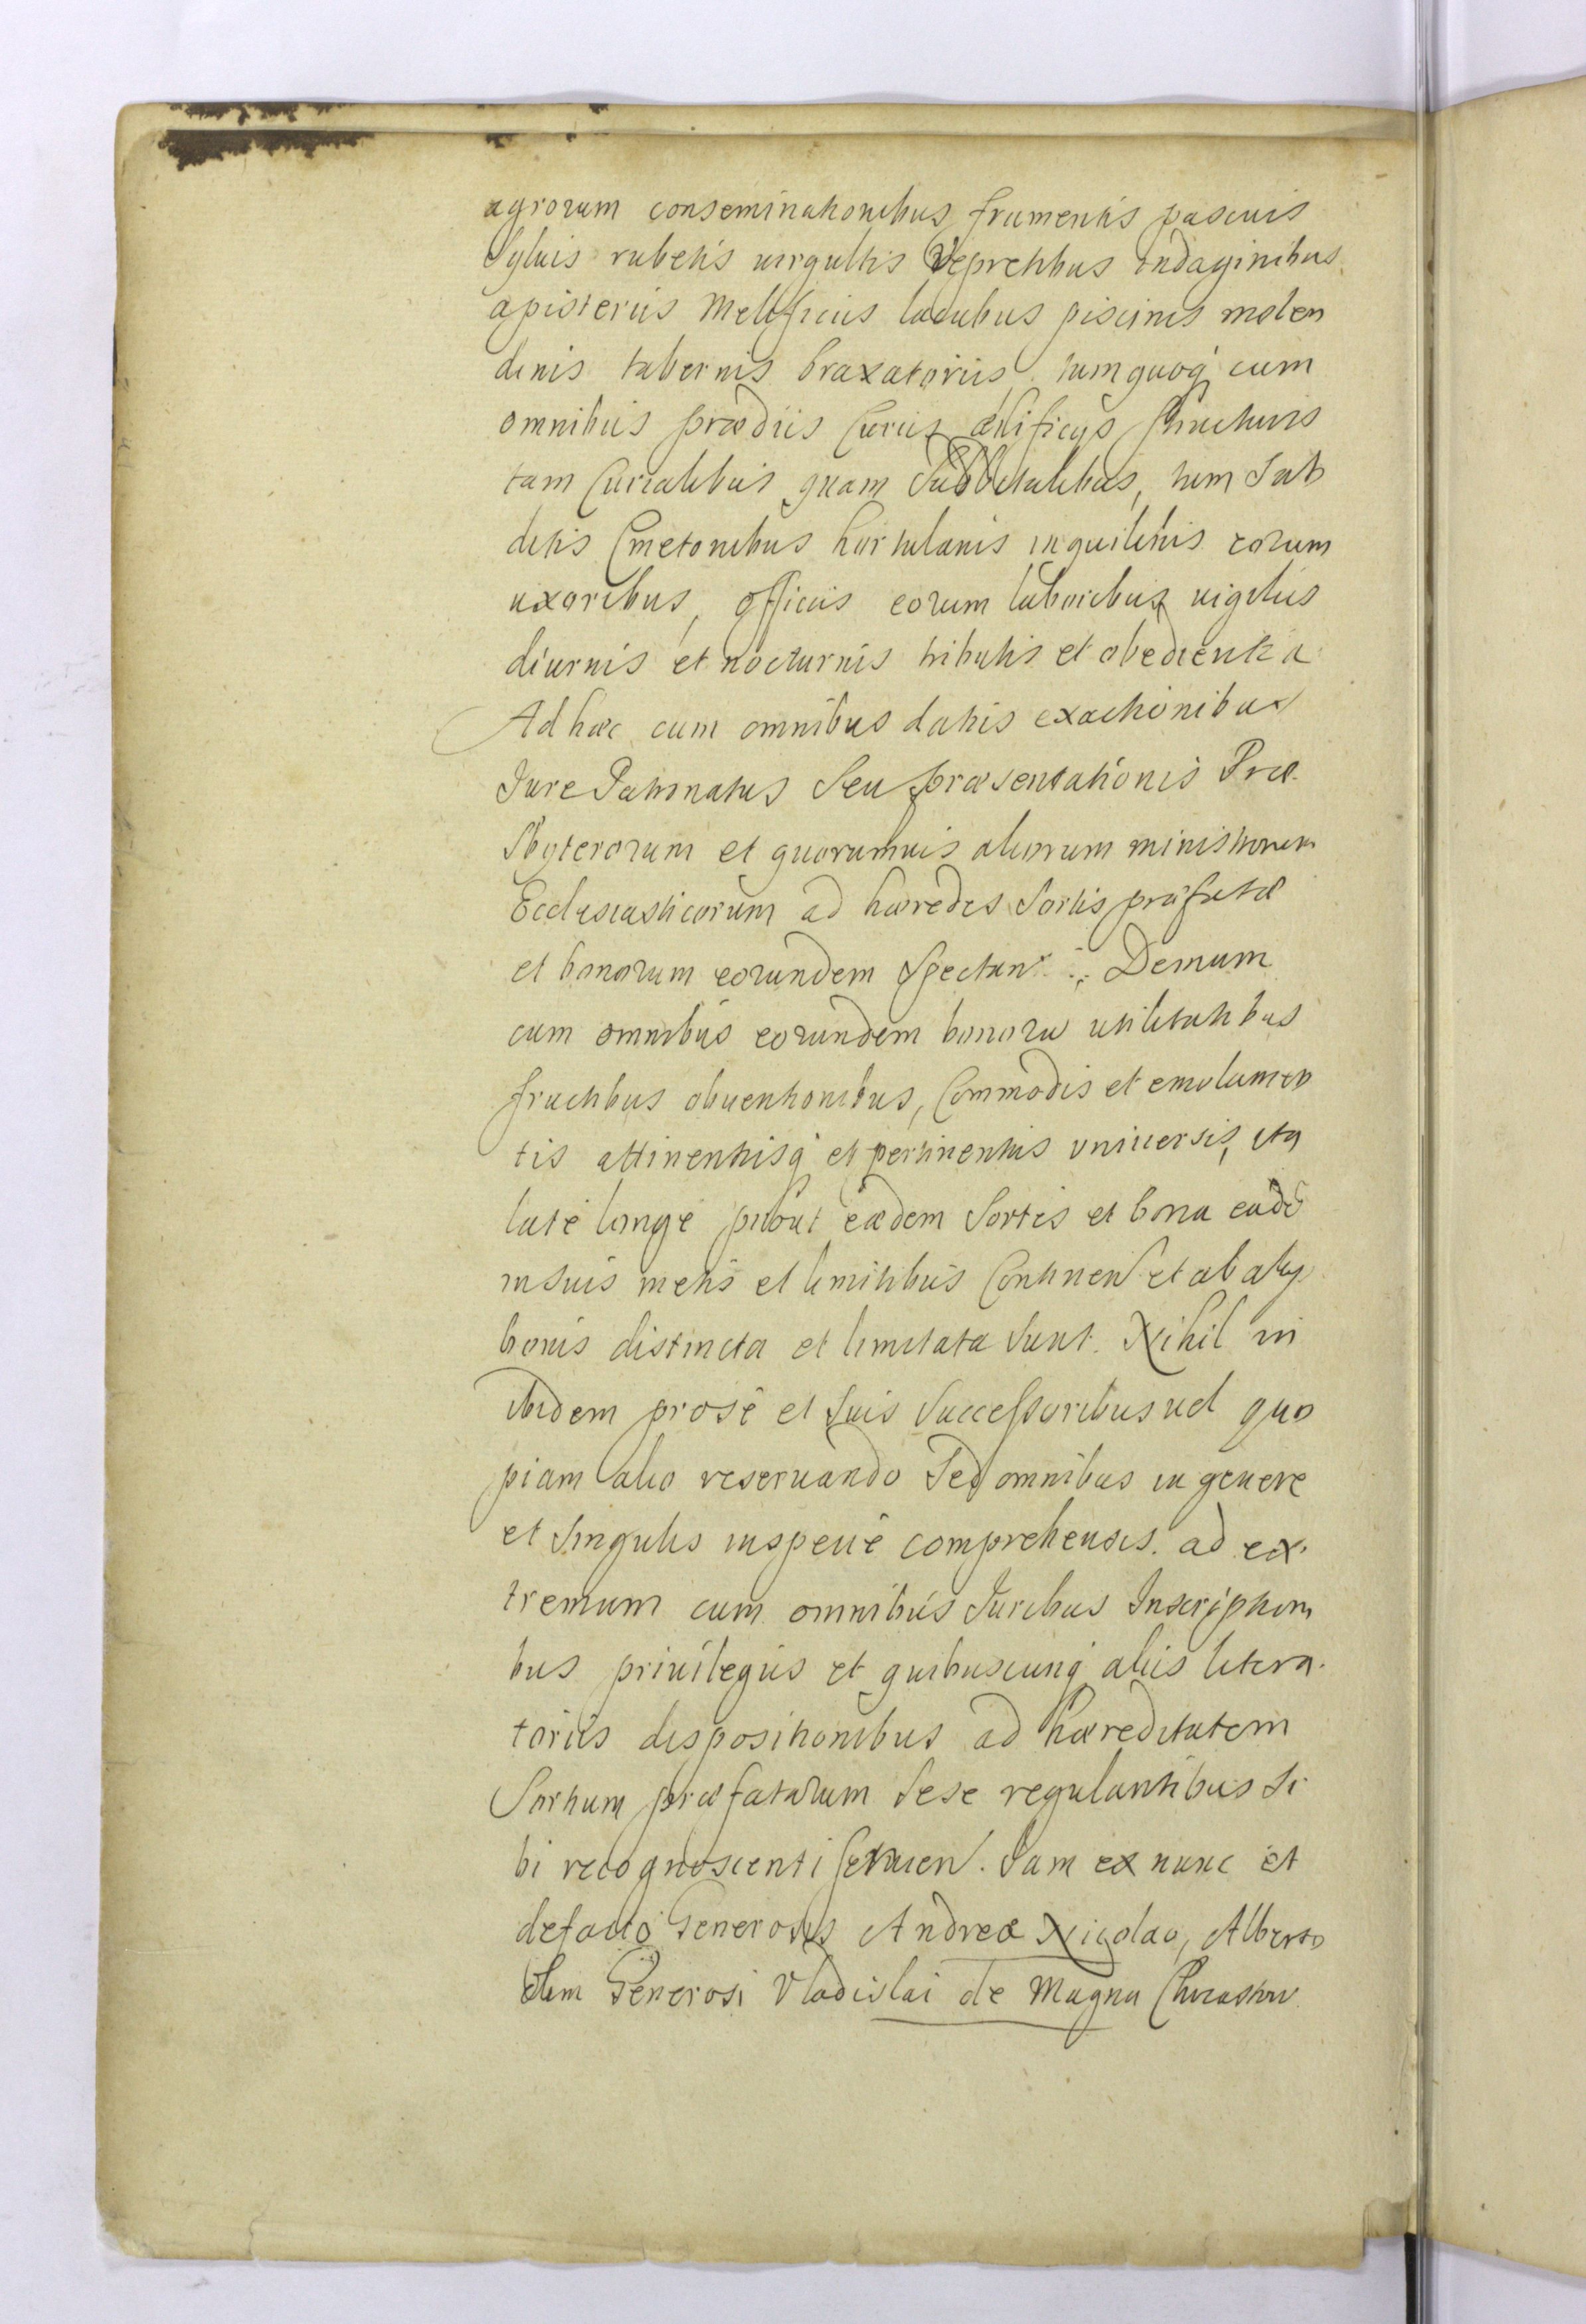 agrorum conseminationibus frumentis pascuis
Syluis rubetis uirgultis Vepretibus indaginibus
apisteriis Mellificiis lacubus piscinis molen
dinis tabernis braxatoriis, tumquoq cum
omnibus prædiis Curiis ædificijs structuris
tam Curialibus quam Subditalibus, tum Sub
ditis Cmetonibus hortulanis inquilinis eorum
uxoribus, officiis eorum laboribus uigiliis
diurnis et nocturnis tributis et obedientia
Ad hæc cum omnibus datiis exactionibus
Jure Patronatus Seu præsentationis Præ
Sbyterorum et quorumuis aliorum ministrorum
Ecclesiasticorum ad hæredes Sortis præfatæ
et bonorum eorundem Spectan: Demum
cum omnibus eorundem bonoru utilitatibus
fructibus obuentionibus, Commodis et emolumen
tis attinentiisq et pertinentiis vniuersis, ita
latè longè prout eædem Sortes et bona eadē
in suis metis et limitibus Continen et ab alijs
bonis distincta et limitata Sunt. Nihil iuris
ibidem pro se et Suis Successoribus uel quo
piam alio reseruando Sed omnibus in genere
et Singulis in specie comprehensis. ad ex
tremum cum omnibus Juribus Inscription
bus priuilegiis et quibuscunq aliis litera
toriis dispositionibus ad hæreditatem
Sortium præfatarum Sese regulantibus Si
bi recognoscenti seruien. Iam ex nunc et
defacto Generosis Andreæ Nicolao, Alberto
olim Generosi Vladislai de Magna